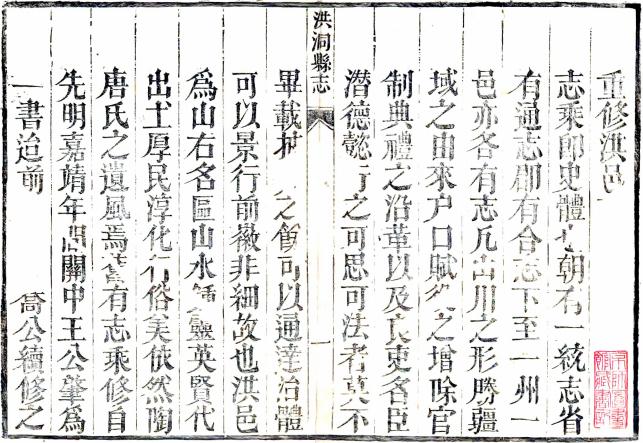 重修洪邑
志乘即史體也朝有一統志省
有通志郡有合志下至一州一
邑亦各有志凡山川之形勝疆
域之由來户口賦役之增除官
制典禮之沿革以及良吏名臣
潛德懿行之可思可法者莫不
洪洞縣志
一
畢載 之餘可以通達治體
可以景行前徽非細故也洪邑
爲山右名區山水鍾靈英賢代
出土厚民淳化行俗美依然陶
唐氏之遺風焉舊有志乘修自
先明嘉靖年間關中王公肇爲
一書迨前 喬公續修之